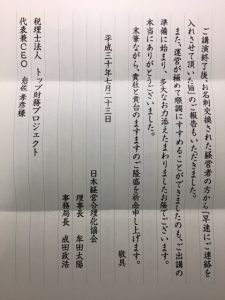 ご講演終了後、お名刺交換された経営者の方から『早速にご連絡を
入れさせて頂いた旨』のご報告もいただきました。
また、運営が極めて順調にすすめることができましたのも、ご出講の
準備に始まり、多大なお力添えたまわりましたお陰でございます。
本当にありがとうございました。
末筆ながら、貴社と貴台のますますのご隆盛を祈念申し上げます。
敬具
平成三十年七月二十三日
日本経営合理化協会
理事長 牟田太陽
事務局長 成田政浩
税理士法人 トップ財務プロジェクト
代表兼CEO 岩佐孝彦様